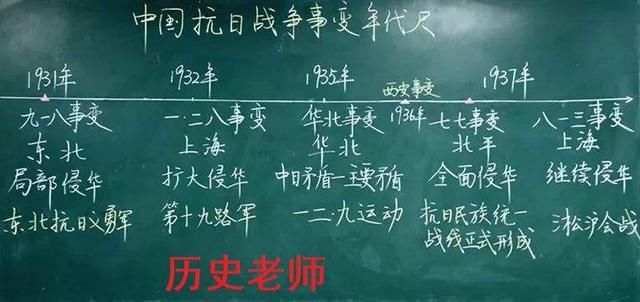 中国抗日战争事变年代尺
1931年 1932年 1935年 西安事变 1937年
九一八事变 一·二八事变 华北事变 1936年 七七事变 八一三事变
东北 上海 华北 北平 上海
局部侵华 扩大侵华 中日矛盾→主要矛盾 全面侵华 继续侵华
东北抗日义勇军 第十九路军 一二·九运动 抗日民族统一 淞沪会战
战线正式形成
历史老师